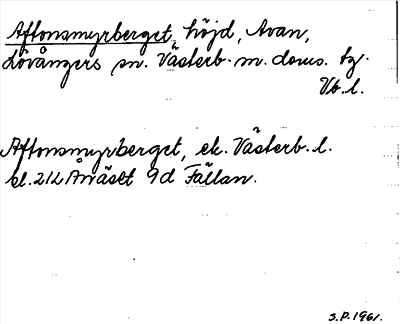 Aftonsmyrberget, höjd, Avan,
Lövångers sn. Västerb. m. doms. tg.
Vb. l.
Aftonsmyrberget, ek. Västerb. l.
bl. 212 Ånäset 9d Fällan.
S.P. 1961.